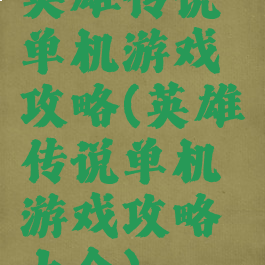 英雄传说
单机游戏
攻略(英雄
传说单机
游戏攻略
大全)